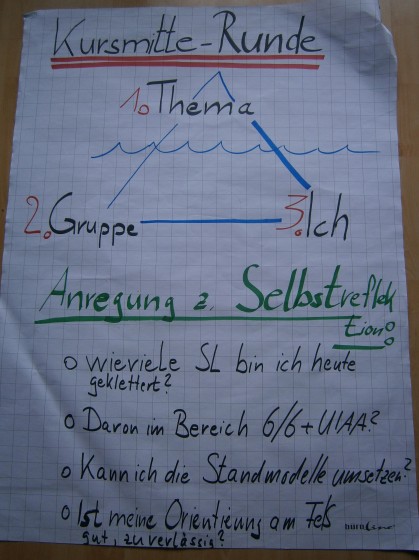 Kursmitte-Runde
1. Thema
2. Gruppe
3. Ich
Anregung z. Selbstreflek
tion:
o wieviele SL bin ich heute
geklettert?
o Davon im Bereich 6/6+ UIAA?
o Kann ich die Standmodelle umsetzen?
o Ist meine Orientierung am Fels
gut, zuverlässig?